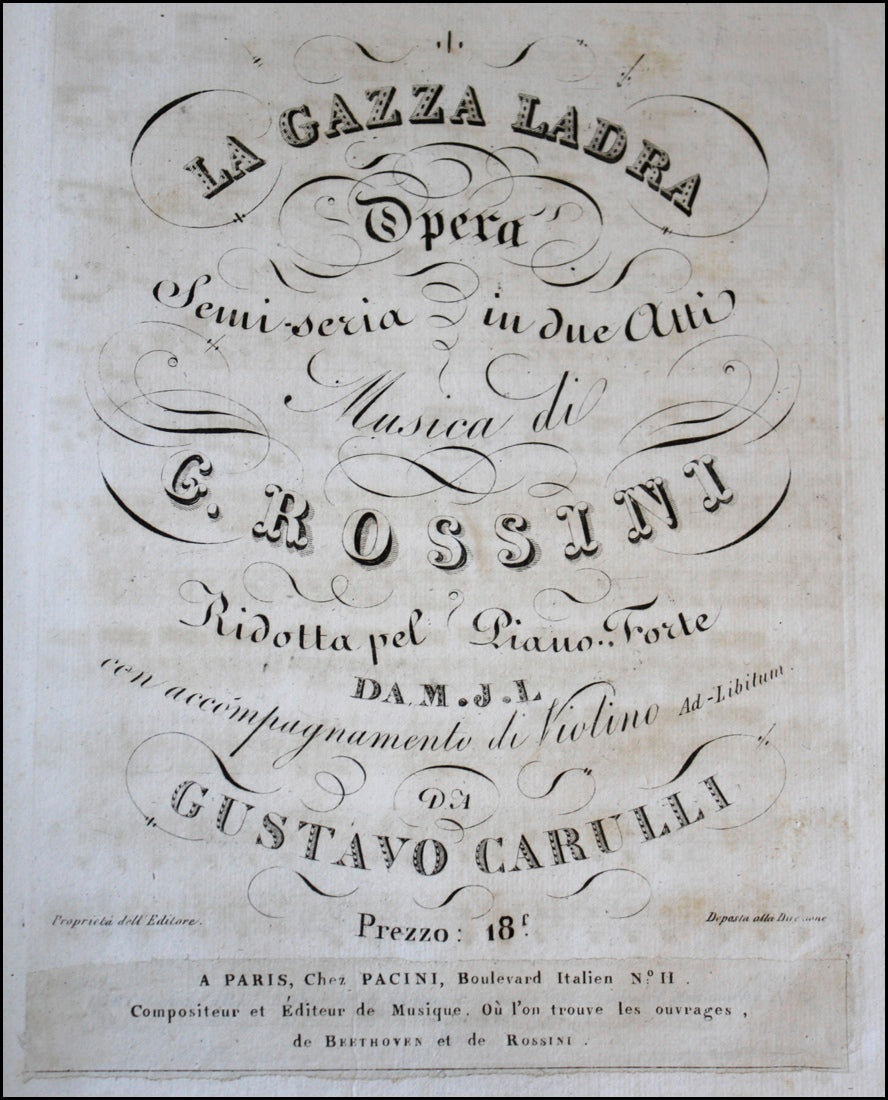 LA GAZZA LADRA
Opera
Semi-seria in due Atti
Musica di
G. ROSSINI
Ridotta pel Piano-Forte
DA M. J. L
con accompagnamento di Violino Ad-Libitum.
DA
GUSTAVO CARULLI
Proprietá dell'Editore.
Prezzo: 18f.
Deposta alla Direzione
A PARIS, Chez PACINI, Boulevard Italien N.º II.
Compositeur et Éditeur de Musique. Où l'on trouve les ouvrages,
de BEETHOVEN et de ROSSINI.